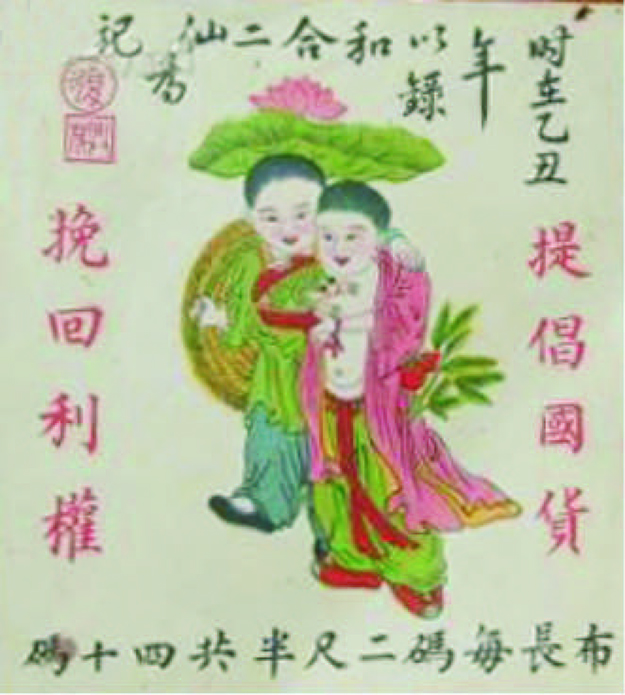 时在乙丑年錄
以和合二仙為記
提倡國貨
挽回利權
布長每碼二尺半共四十碼